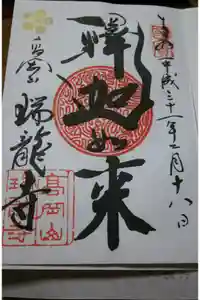 平成二十一年二月十八日
釋迦如来
高岡山
瑞龍寺
高岡山
瑞龍寺